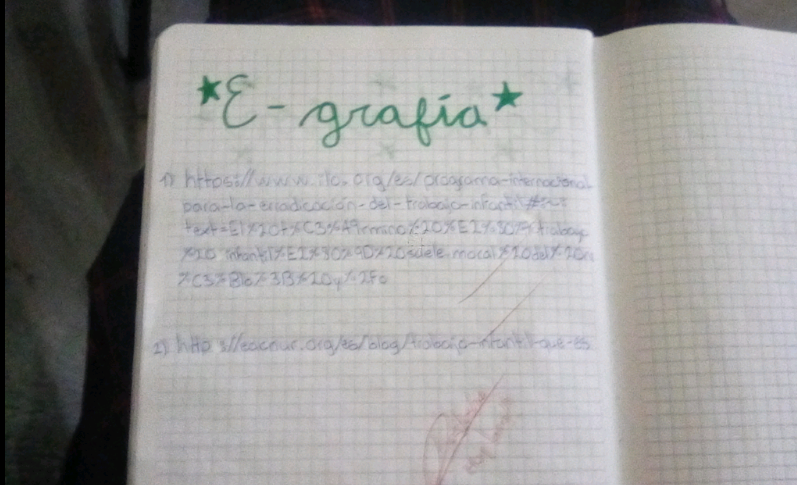 E-grafía
1) https://www.ilo.org/es/programa-internacional
para-la-erradicación-del-trabajo-infantil#:~:
text=El%20t%C3%A9rmino%20%E2%80%9Ctrabajo
%20infantil%E2%80%9D%20suele,moral%20del%20ni
%C3%B1o%3B%20y%2Fo
2) http s://eacnur.org/es/blog/trabajo-infantil-que-es